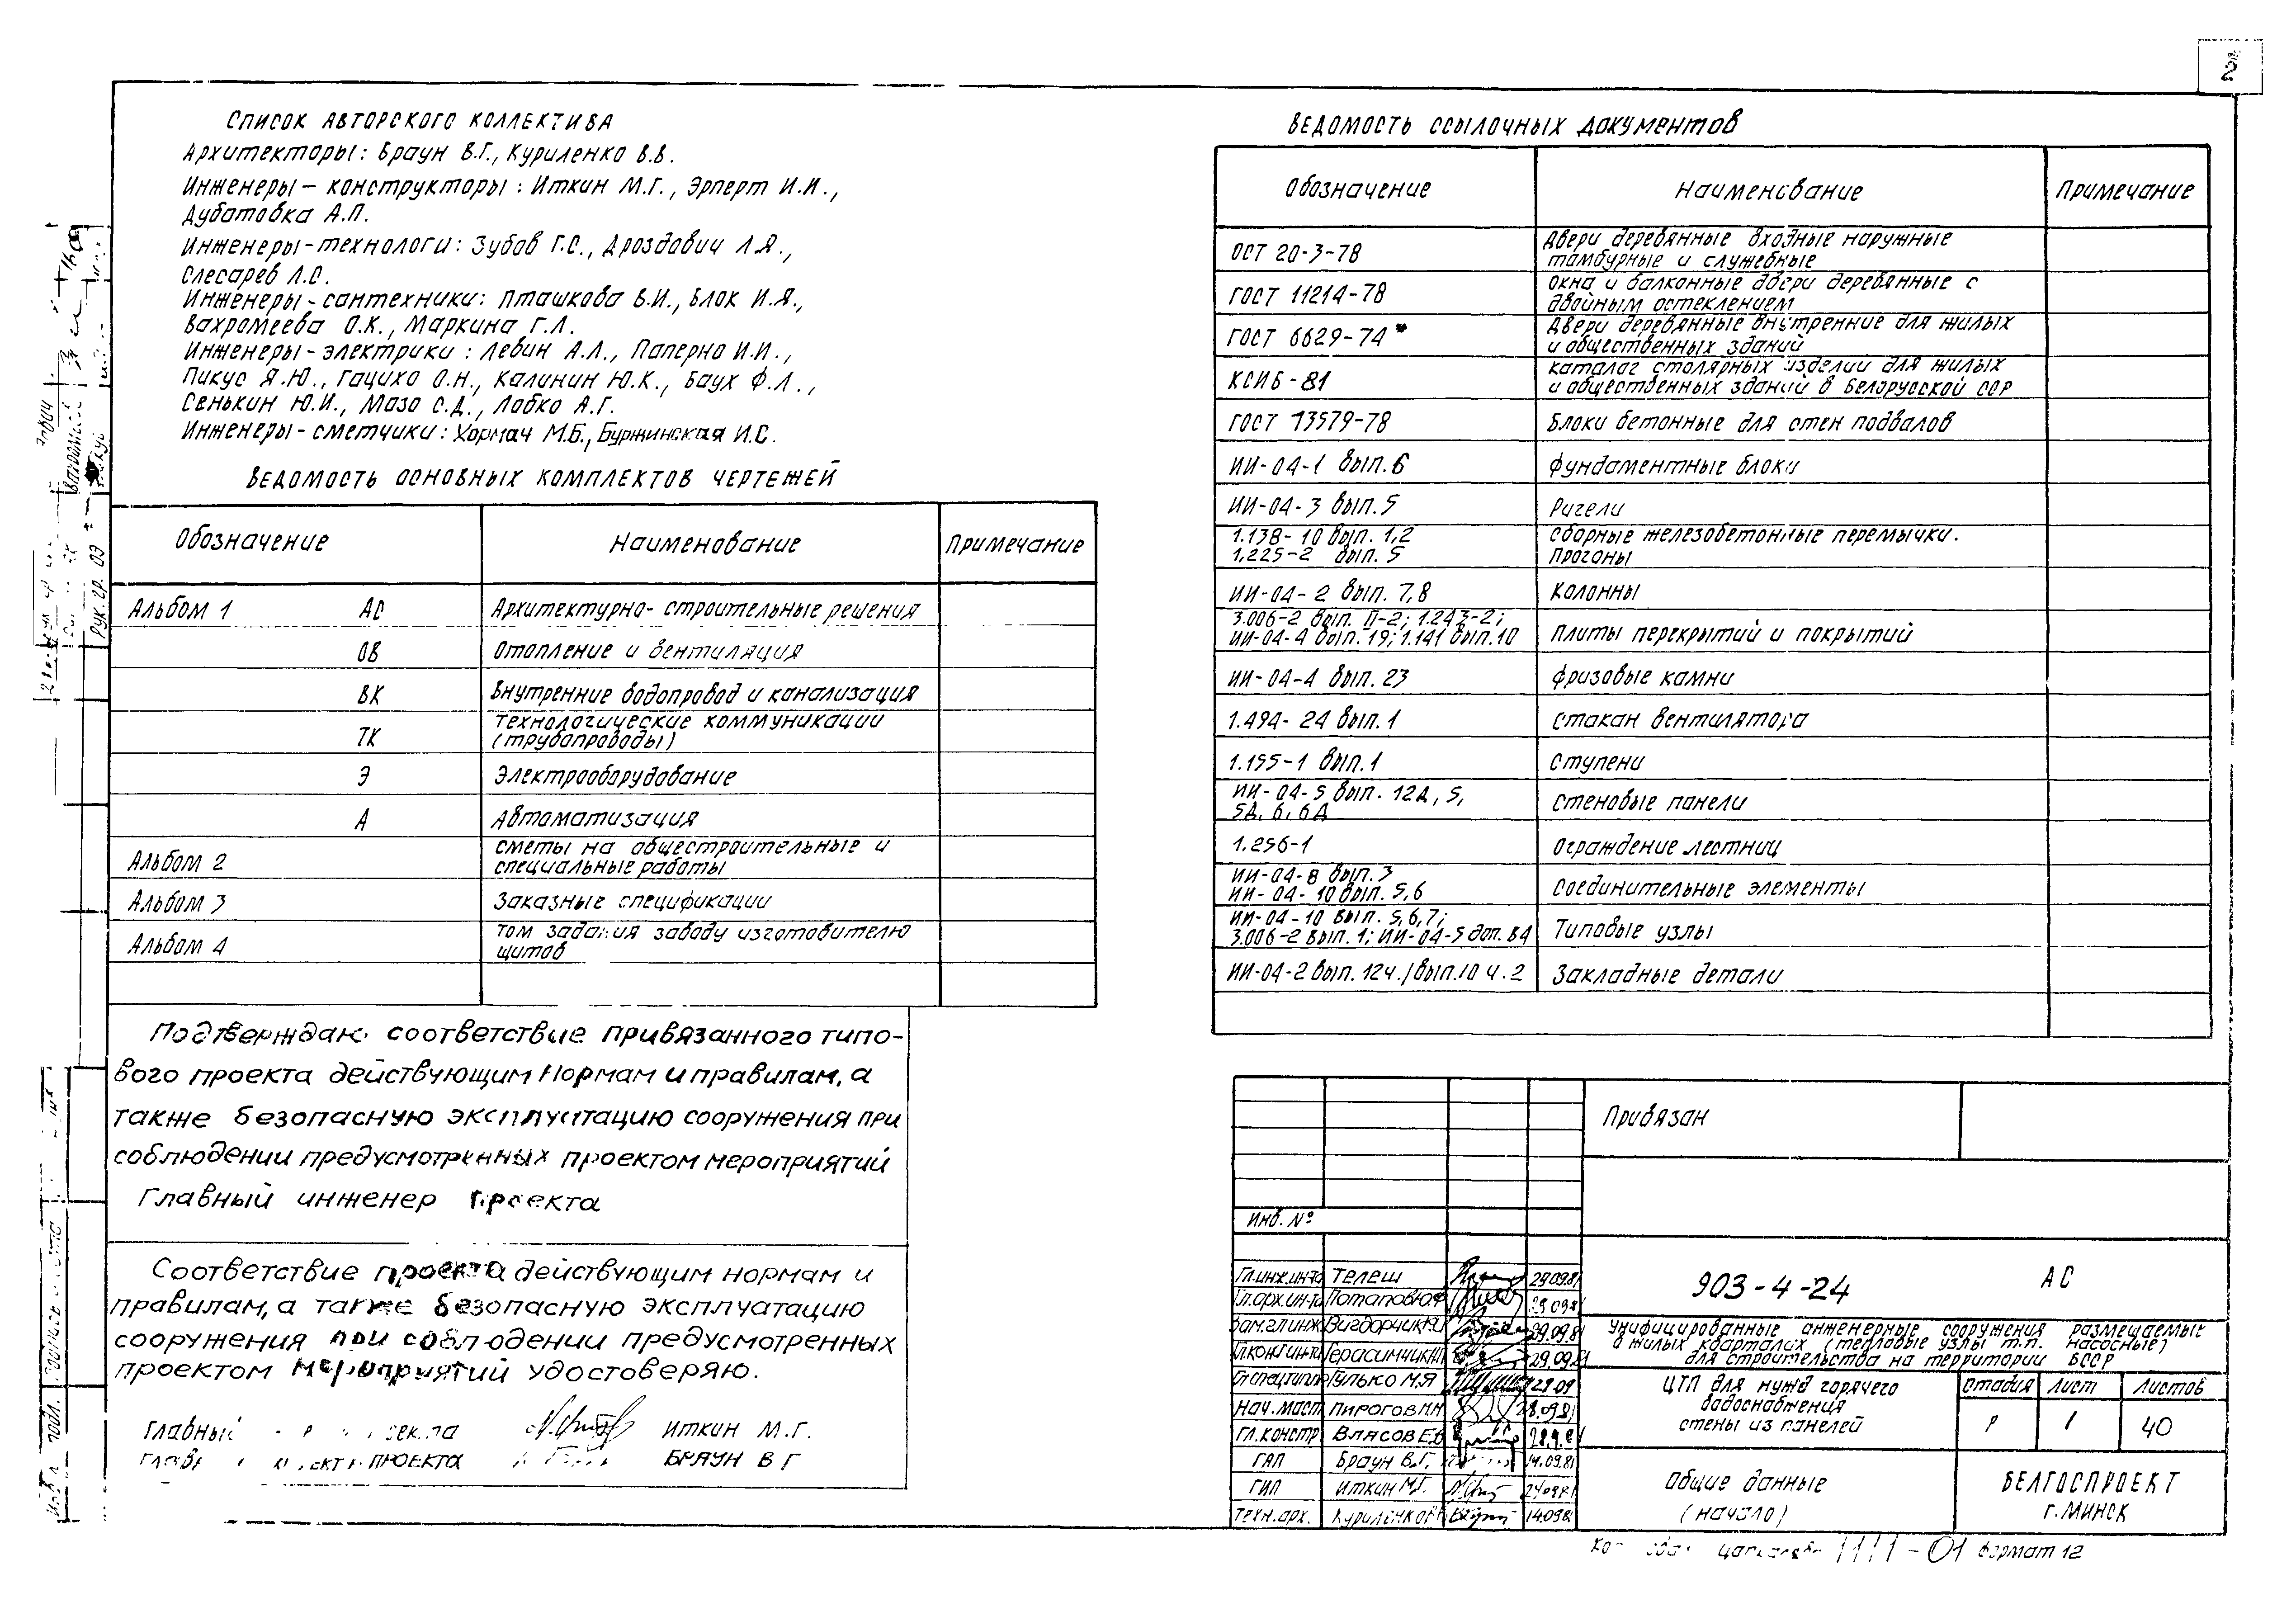 2
Список авторского коллектива
Архитекторы: Браун В.Г., Куриленко В.В.
Инженеры – конструкторы: Иткин М.Г., Эрперт И.И.,
Дубатовка А.П.
Инженеры-технологи: Зубов Г.С., Дроздович Л.Я.,
Слесарев Л.С.
Инженеры-сантехники: Пташкова В.И., Блок И.Я.,
Вахромеева О.К., Маркина Г.Л.
Инженеры-электрики: Левин А.Л., Паперно И.И.,
Пикус Я.Ю., Гацихо О.Н., Калинин Ю.К., Баух Ф.Л.,
Сенькин Ю.И., Мазо С.Д., Лобко А.Г.
Инженеры-сметчики: Хормач М.Б., Буржинская И.С.
Ведомость основных комплектов чертежей
Обозначение Наименование Примечание
Альбом 1 АС Архитектурно-строительные решения
ОВ Отопление и вентиляция
ВК Внутренние водопровод и канализация
ТК Технологические коммуникации
(трубопроводы)
Э Электрооборудование
А Автоматизация
Альбом 2 Сметы на общестроительные и
специальные работы
Альбом 3 Заказные спецификации
Альбом 4 Том задания заводу изготовителю
щитов
Подтверждаю соответствие привязанного типо-
вого проекта действующим нормам и правилам, а
также безопасную эксплуатацию сооружения при
соблюдении предусмотренных проектом мероприятий
Главный инженер проекта
Соответствие проекта действующим нормам и
правилам, а также безопасную эксплуатацию
сооружения при соблюдении предусмотренных
проектом мероприятий удостоверяю.
Главный Иткин М.Г.
проекта Браун В Г
Ведомость ссылочных документов
Обозначение Наименование Примечание
ОСТ 20-3-78 Двери деревянные входные наружные
тамбурные и служебные
ГОСТ 11214-78 Окна и балконные двери деревянные с
двойным остеклением
ГОСТ 6629-74* Двери деревянные внутренние для жилых
и общественных зданий
КСИБ-81 Каталог столярных изделий для жилых
и общественных зданий в Белорусской ССР
ГОСТ 13579-78 Блоки бетонные для стен подвалов
ИИ-04-1 вып.6 Фундаментные блоки
ИИ-04-3 вып.5 Ригели
1.138-10 вып. 1,2 Сборные железобетонные перемычки.
1.225-2 вып. 5 Прогоны
ИИ-04-2 вып. 7,8 Колонны
3.006-2 вып. П-2; 1.243-2;
ИИ-04-4 вып. 19; 1.141 вып.10 Плиты перекрытий и покрытий
ИИ-04-4 вып. 23 Фризовые камни
1.494-24 вып.1 Стакан вентилятора
1.155-1 вып.1 Ступени
ИИ-04-5 вып. 12Д, 5,
5Д, 6, 6Д Стеновые панели
1.256-1 Ограждение лестниц
ИИ-04-8 вып.3
ИИ-04-10 вып. 5,6 Соединительные элементы
ИИ-04-10 вып. 5,6,7;
3.006-2 вып. 1; ИИ-04-5 доп. В4 Типовые узлы
ИИ-04-2 вып. 12ч.1 вып.10 ч.2 Закладные детали
Привязан
Инв. №
Гл.инж.ин-та Телеш 29.09.81
Гл.арх.ин-та Потапов Ю.Ф 29.09.81
Зам.гл.инж Вигдорчик 29.09.81
Гл.конст.ин-та Герасимчик 29.09.81
Гл.спец.тип.пр Гулько М.Я 29.09
Нач.маст Пирогов 28.09.81
Гл.констр. Власов Е.В 28.9.81
ГАП Браун В.Г. 14.09.81
ГИП Иткин М.Г. 24.09.81
Техн.арх. Куриленко 14.09.81
903-4-24 АС
Унифицированные инженерные сооружения размещаемые
в жилых кварталах (тепловые узлы т.п. насосные)
для строительства на территории БССР
ЦТП для нужд горячего
водоснабжения
стены из панелей
Стадия Лист Листов
Р 1 40
Общие данные
(начало)
БЕЛГОСПРОЕКТ
г. МИНСК
формат 12